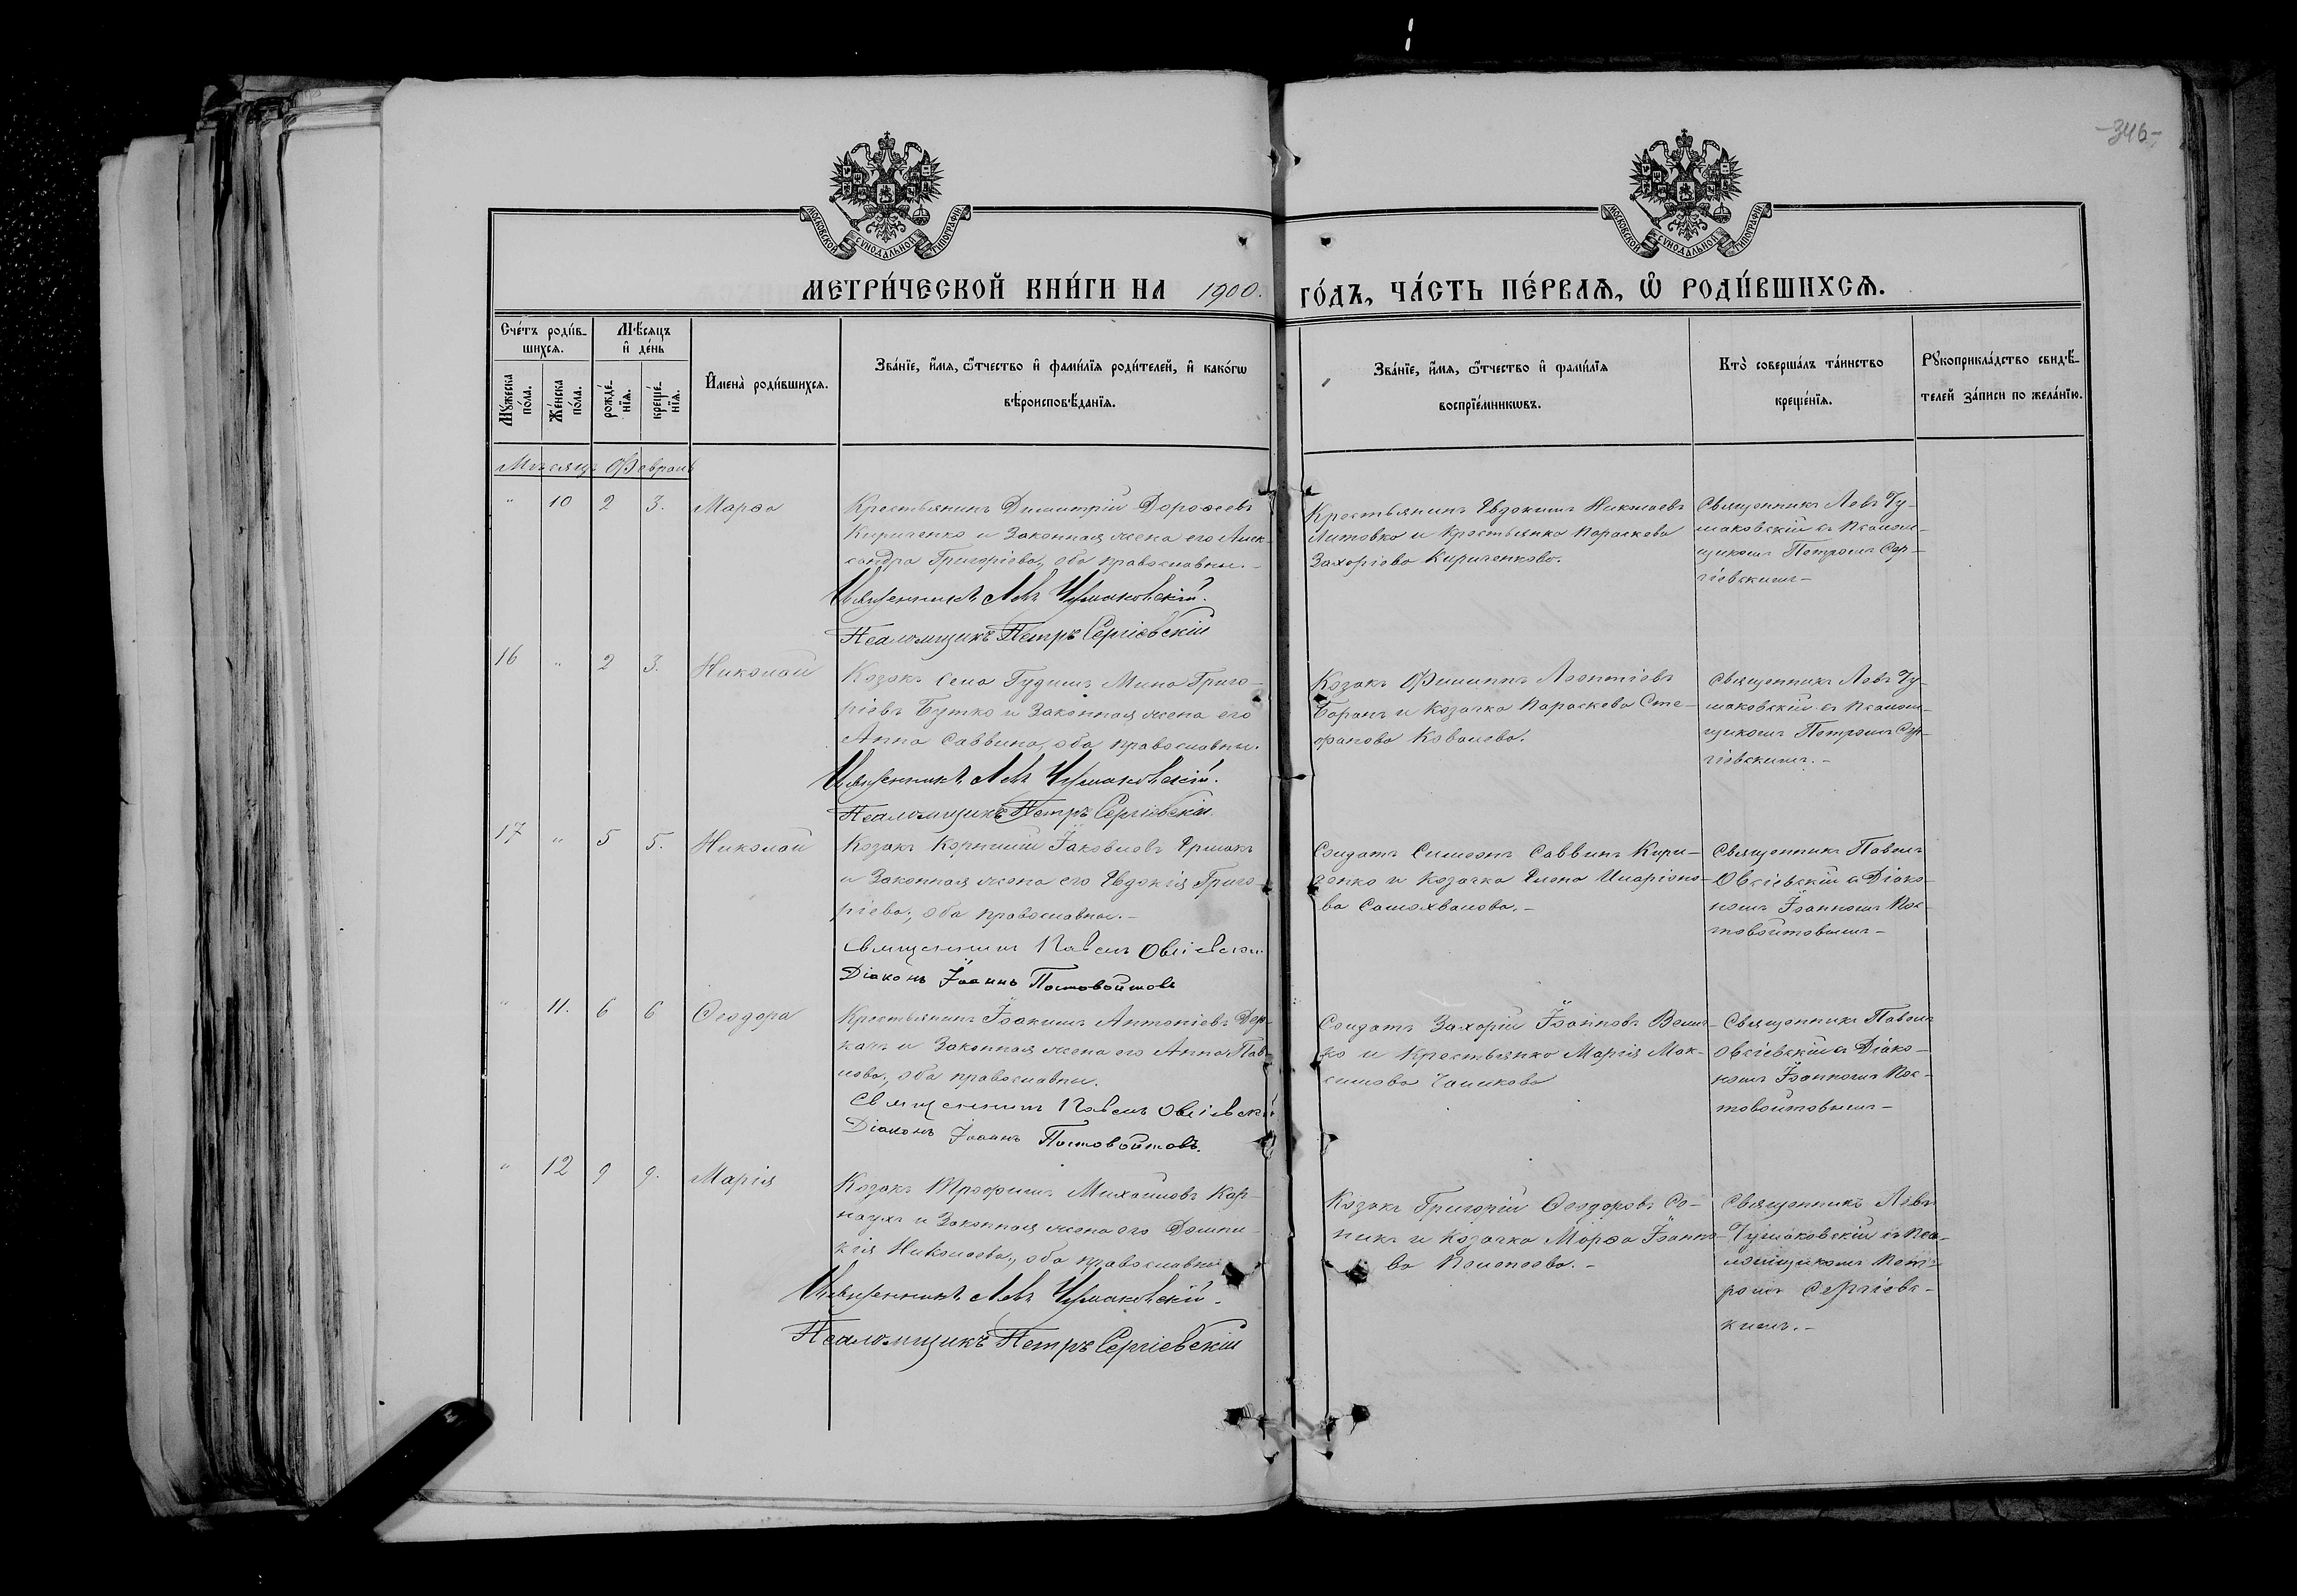 -346-
МОСКОВСКОЙ СѴНОДАЛЬНОЙ ТИПОГРАФІИ
МОСКОВСКОЙ СѴНОДАЛЬНОЙ ТИПОГРАФІИ
МЕТРИ́ЧЕСКОЙ КНИ́ГИ НА 1900. ГО́ДЪ, ЧА́СТЬ ПЕ́РВАѦ, Ѡ҆ РОДИ́ВШИХСѦ.
Счетъ роди́в-
шихсѧ.
Мꙋжеска
по́ла.
Же́нска
по́ла.
Мѣ́сѧцъ
и҆ де́нь
рожде́-
нїѧ.
креще́-
нїѧ.
И҆мена̀ роди́вшихсѧ.
Зва́нїе, и҆́мѧ, ѻ҆́тчество и҆ фами́лїѧ роди́телей, и҆ како́гѡ
вѣроисповѣ́данїѧ.
Зва́нїе, и҆́мѧ, ѻ҆́тчество и҆ фами́лїѧ
воспрїе́мникѡвъ.
Кто̀ соверша́лъ та́инство
креще́нїѧ.
Рꙋкоприкла́дство свидѣ́-
телей за́писи по жела́нїю.
Мѣсяцъ Февраль
" 10 2 3. Марѳа
Крестьянинъ Димитрій Дороѳеевъ
Кириченко и Законная жена его Алек-
сандра Григоріева, оба православны.-
Священникъ Левъ Чумаковскій.
Псаломщикъ Петръ Сергіевскій
Крестьянинъ Евдокимъ Николаевъ
Литовко и крестьянка Параскева
Захоріова Кириченкова.
Священникъ Левъ Чу-
маковскій съ Псалом-
щикомъ Петромъ Сер-
гіевскимъ-
16 " 2 3. Николай
Козакъ села Гудимъ Мина Григо-
ріевъ Бутко и Законная жена его
Анна Саввина, оба православны.
Священникъ Левъ Чумаковскій.
Псаломщикъ Петръ Сергіевскій.
Козакъ Филиппъ Леонтіевъ
Баранъ и Козачка Параскева Сте-
фанова Ковалева.
Священникъ Левъ Чу-
маковскій съ Псалом-
щикомъ Петромъ Сер-
гіевскимъ.-
17 " 5 5. Николай
Козакъ Корнилій Іаковлевъ Ермакъ
и Законная жена его Евдокія Григо-
ріева, оба православны.-
Священникъ Павелъ Овсіевскій
Діаконъ Іоаннъ Постовойтовъ
Солдатъ Симеонъ Саввинъ Кири-
ченко и Козачка Елена Иларіоно-
ва Самохвалова.-
Священникъ Павелъ
Овсіевскій съ Діако-
номъ Іоанномъ Пос-
товойтовымъ-
" 11. 6 6 Ѳеодора
Крестьянинъ Іоакимъ Антоніевъ Дер-
качъ и Законная жена его Анна Пав-
лова, оба православны.
Священникъ Павелъ Овсіевскій
Діаконъ Іоаннъ Постовойтовъ.
Солдатъ Захорій Іоанновъ
и Крестьянка Марія Мак-
симова
Священникъ Павелъ
Овсіевскій съ Діако-
номъ Іоанномъ Пос-
товойтовымъ-
" 12 9 9. Марія
Козакъ Трофимъ Михаиловъ Кар-
наухъ и Законная жена его Домни-
кія Николаева, оба православны
Священникъ Левъ Чумаковскій.
Псаломщикъ Петръ Сергіевскій
Козакъ Григорій Ѳеодоровъ Со-
никъ и Козачка Марѳа Іоанно-
ва
Священникъ Левъ
Чумаковскій съ Пса-
ломщикомъ Пет-
ромъ Сергіевс-
кимъ.-